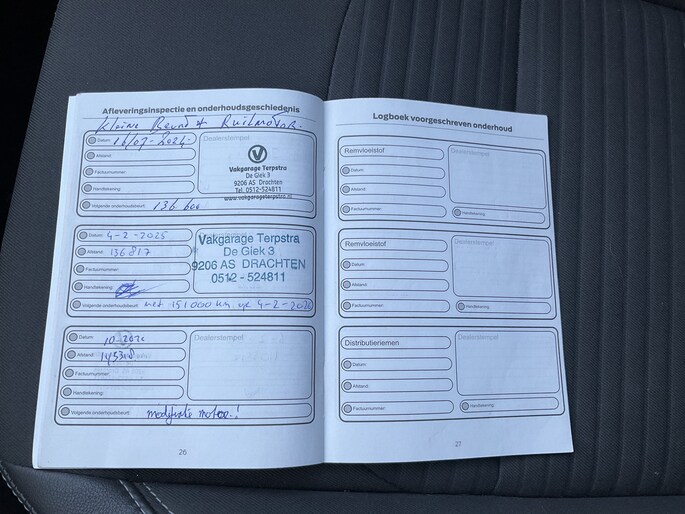 Afleveringsinspectie en onderhoudsgeschiedenis
Kleine Beurt + Ruilmotor.
Datum: 16/07-2024-
Afstand:
Factuurnummer:
Handtekening:
Volgende onderhoudsbeurt: 136 600
Dealerstempel
Vakgarage Terpstra
De Giek 3
9206 AS Drachten
Tel. 0512-524811
www.vakgarageterpstra.nl
Datum: 4-2-2025
Afstand: 136817
Factuurnummer:
Handtekening:
Volgende onderhoudsbeurt: met 151000 km, 4-2-2026
Vakgarage Terpstra
De Giek 3
9206 AS DRACHTEN
0512 - 524811
Datum: 10-202
Afstand:
Factuurnummer:
Handtekening:
Volgende onderhoudsbeurt: motor!
Dealerstempel
26
Logboek voorgeschreven onderhoud
Remvloeistof
Datum:
Afstand:
Factuurnummer:
Dealerstempel
Handtekening:
Remvloeistof
Datum:
Afstand:
Factuurnummer:
Dealerstempel
Handtekening:
Distributieriemen
Datum:
Afstand:
Factuurnummer:
Dealerstempel
Handtekening:
27